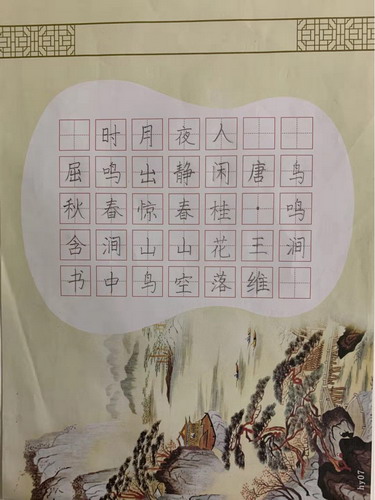 鸟鸣涧
唐·王维
人闲桂花落
夜静春山空
月出惊山鸟
时鸣春涧中
屈秋含书
hy07